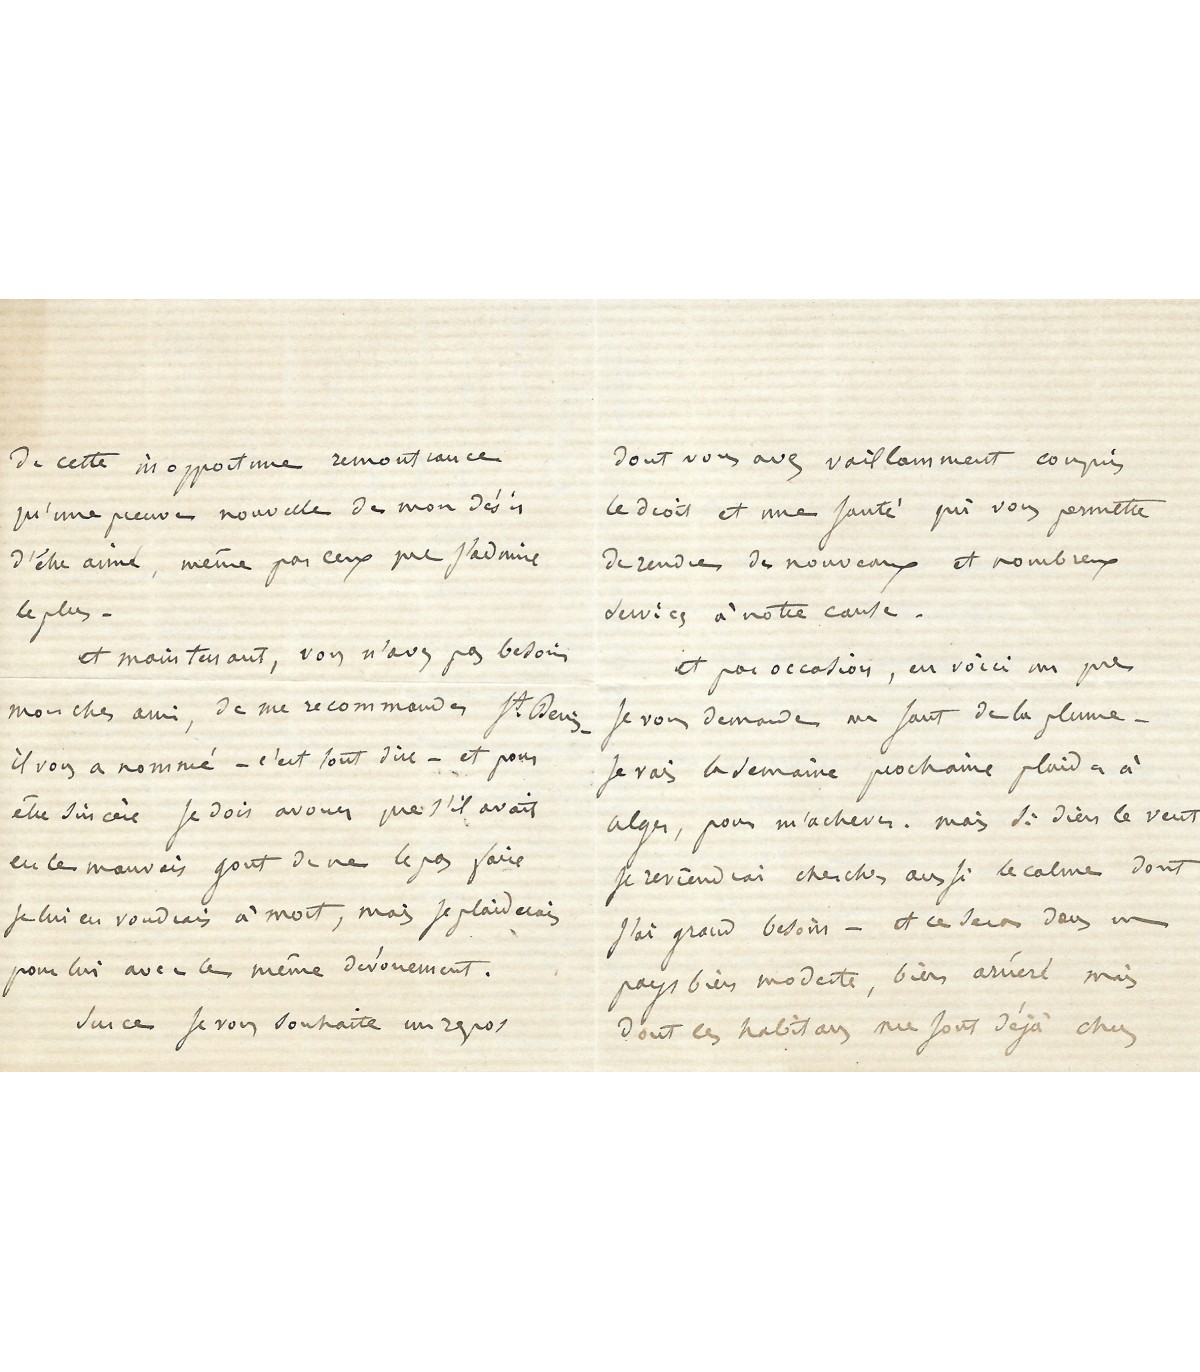 De cette inopportune remontrance
qu'une preuve nouvelle de mon désir
d'être aimé, même par ceux que j'admire
le plus –
et maintenant, vous n'avez pas besoin
mon cher ami, de me recommander St. Denis –
il vous a nommé – c'est tout dire – et pour
être sincère je dois avouer que s'il avait
eu le mauvais gout de ne le pas faire
je lui en voudrais à mort, mais je plaiderais
pour lui avec le même dévouement.
Sur ce je vous souhaite un repos
dont vous avez vaillamment conquis
le droit et une santé qui vous permette
de rendre de nouveaux et nombreux
services à notre cause.
et par occasion, en voici un que
je vous demande au saut de la plume –
je vais la semaine prochaine plaider à
alger, pour m'achever. mais si dieu le veut
je reviendrai chercher aussi le calme dont
j'ai grand besoin – et ce sera dans un
pays bien modeste, bien arriéré mais
dont les habitans me sont déjà chers